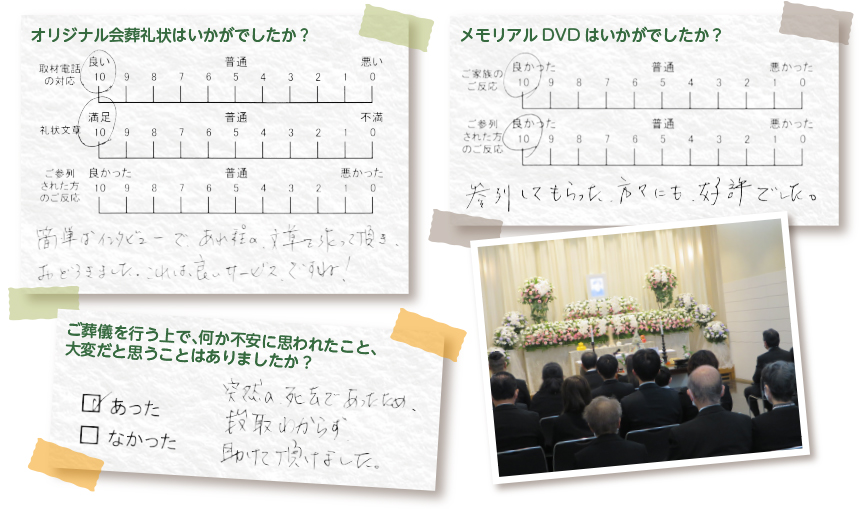 オリジナル会葬礼状はいかがでしたか？
取材電話の対応
良い 普通 悪い
10 9 8 7 6 5 4 3 2 1 0
礼状文章
満足 普通 不満
10 9 8 7 6 5 4 3 2 1 0
ご参列された方のご反応
良かった 普通 悪かった
10 9 8 7 6 5 4 3 2 1 0
簡単なインタビューで、あれ程の、文章を張って頂き、
おどろきました。これは、良いサービス、ですね！
メモリアルDVDはいかがでしたか？
ご家族のご反応
良かった 普通 悪かった
10 9 8 7 6 5 4 3 2 1 0
ご参列された方のご反応
良かった 普通 悪かった
10 9 8 7 6 5 4 3 2 1 0
参列してもらった、方々にも、好評でした。
ご葬儀を行う上で、何か不安に思われたこと、
大変だと思うことはありましたか？
あった
なかった
突然の死去であったため、
段取わからず
助けて頂けました。